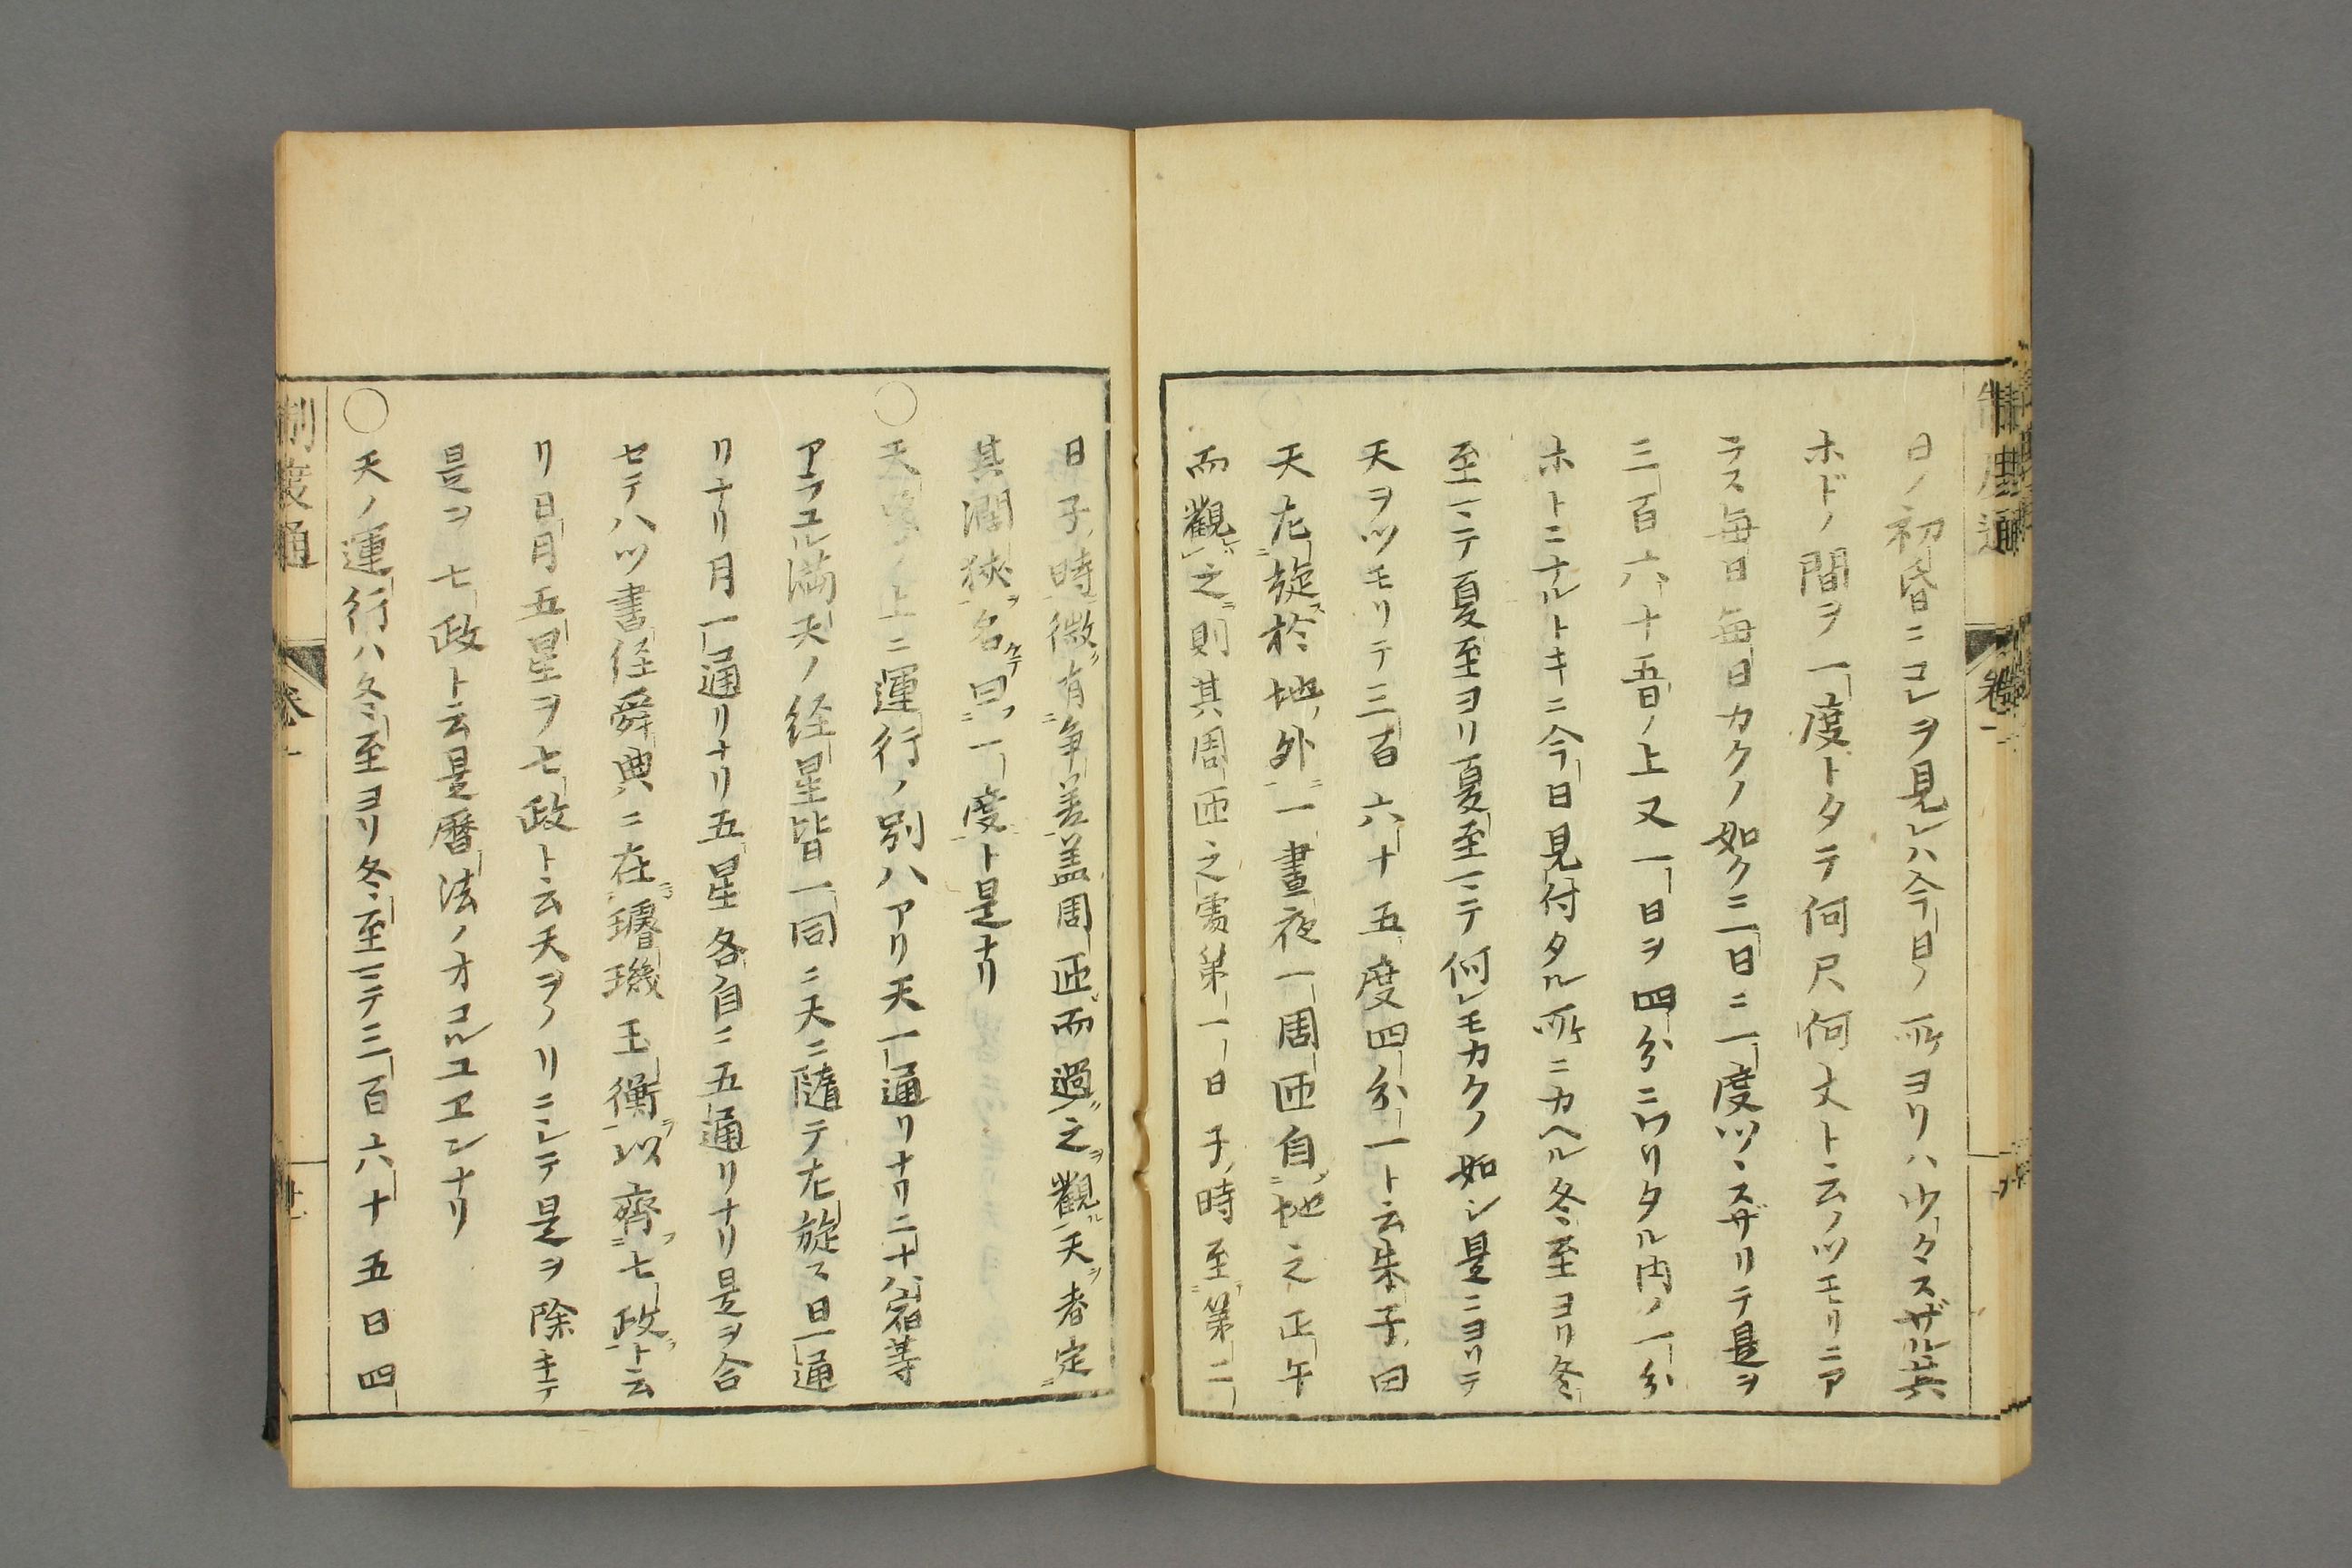 日ノ初昏ニコレヲ見レハ今日ノ所ヨリハ少クスザル其
ホドノ間ヲ一度トタテ何尺何丈ト云ノツモリニア
ラス毎日毎日カクノ如クニ一日ニ一度ツヽスザリテ是ヲ
三百六十五日ノ上又一日ヲ四分ニワリタル内ノ一分
ホトニナルトキニ今日見付タル所ニカヘル冬至ヨリ冬
至ニテ夏至ヨリ夏至ニテ何レモカクノ如シ是ニヨリテ
天ヲツモリテ三百六十五度四分一ト云朱子曰
天左旋於地外一晝夜一周匝自地之正午
而觀之則其周匝之處第一日子時至第二
日子時微有争差盖周匝而過之觀天者定
其濶狹名曰一度ト是ナリ
〇天ノ上ニ運行ノ別ハアリ天一通リナリ二十八宿等
アラユル満天ノ経星皆一同ニ天ニ隨テ左旋ス日一通
リナリ月一通リナリ五星各自ニ五通リナリ是ヲ合
セテ八ツ書経舜典ニ在璿璣玉衡以齊七政ト云
リ日月五星ヲ七政ト云天ヲノリニシテ是ヲ除キテ
是ヲ七政ト云是曆法ノオコルユエンナリ
〇天ノ運行ハ冬至ヨリ冬至ニテ三百六十五日四
制度通
卷一